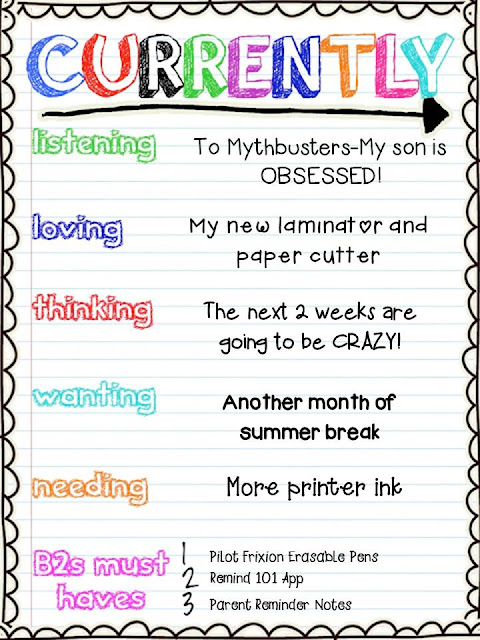 CURRENTLY
listening
To Mythbusters-My son is
OBSESSED!
loving
My new laminator and
paper cutter
thinking
The next 2 weeks are
going to be CRAZY!
wanting
Another month of
summer break
needing
More printer ink
B2s must
haves
1 Pilot Frixion Erasable Pens
2 Remind 101 App
3 Parent Reminder Notes